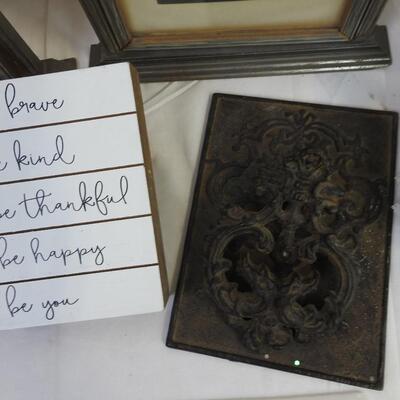 brave
e kind
be thankful
be happy
be you